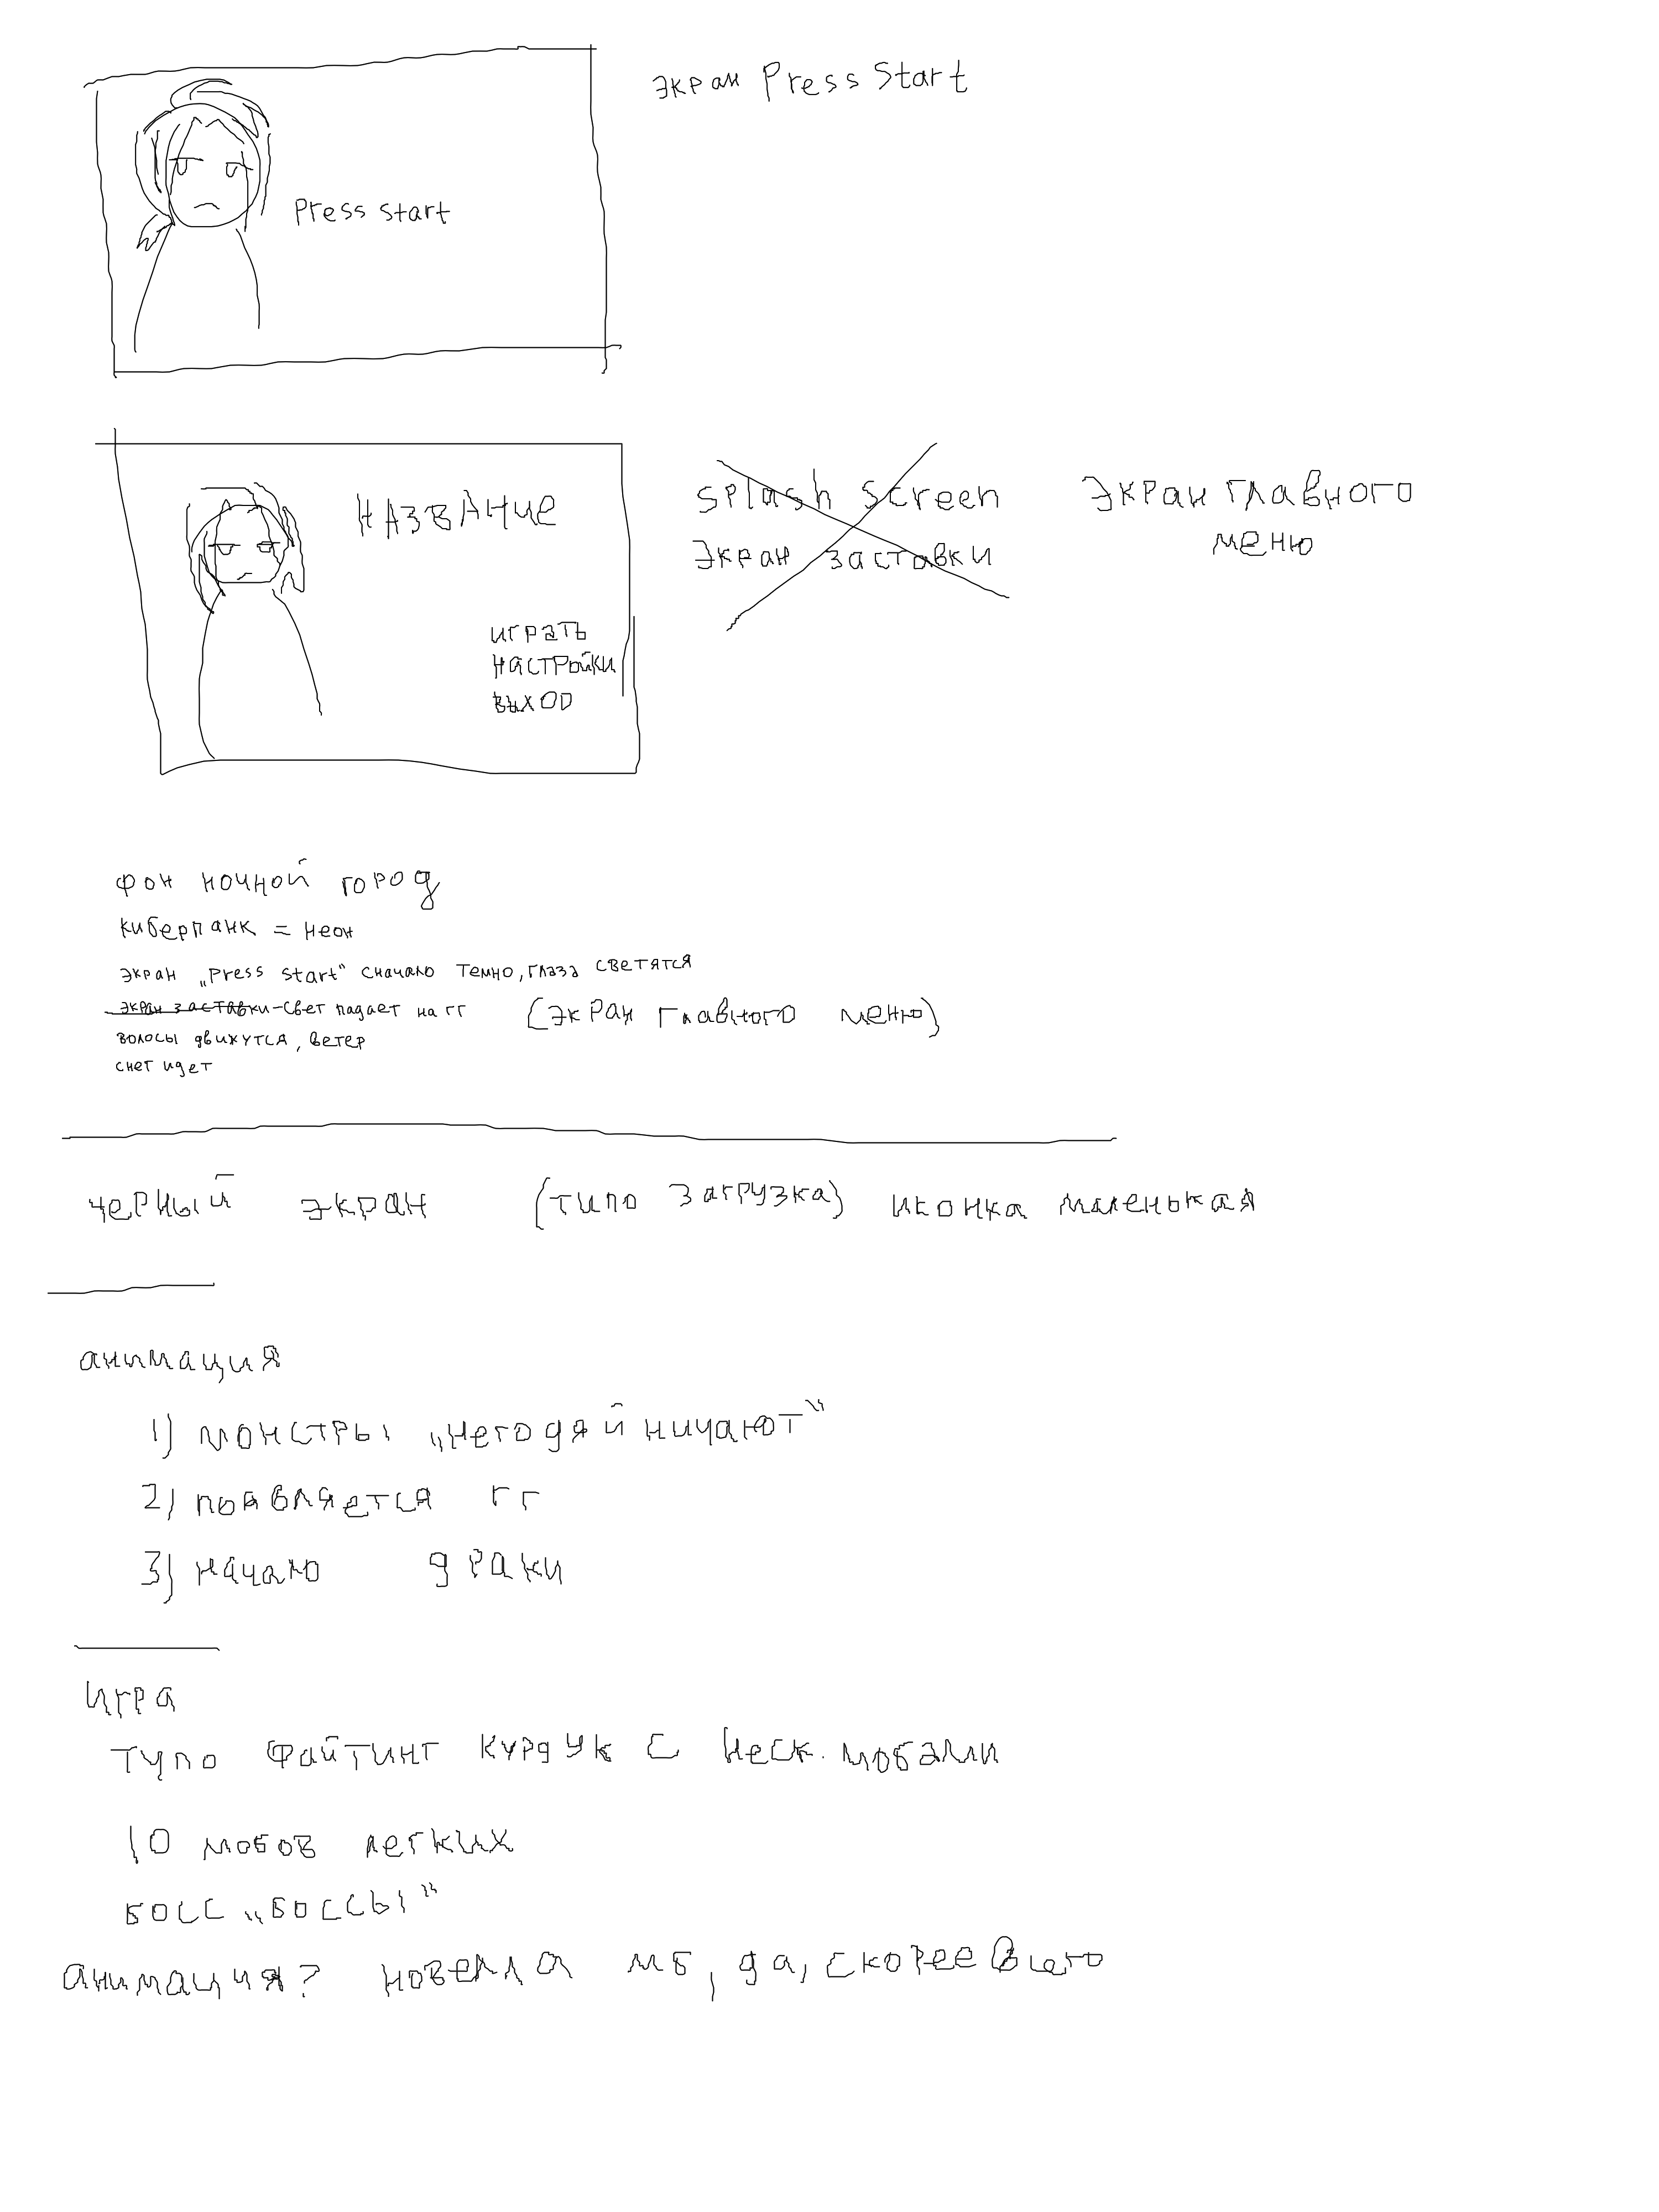 экран Press Start
Press start
НАЗВАНИЕ
играть
настройки
выход
splash screen
экран заставки
экран главного
меню
фон ночной город
киберпанк = неон
экран „Press start“ сначало темно, глаза светятся
экран заставки - свет падает на гг (экран главного меню)
волосы движутся, ветер
снег идет
черный экран (типо загрузка) иконка маленькая
анимация
1) монстры „негодяйничают“
2) появляется гг
3) начало драки
Игра
тупо файтинг с неск. мобами
10 мобов легких
босс „боссы“
анимация? новелла мб, да, скорее всего